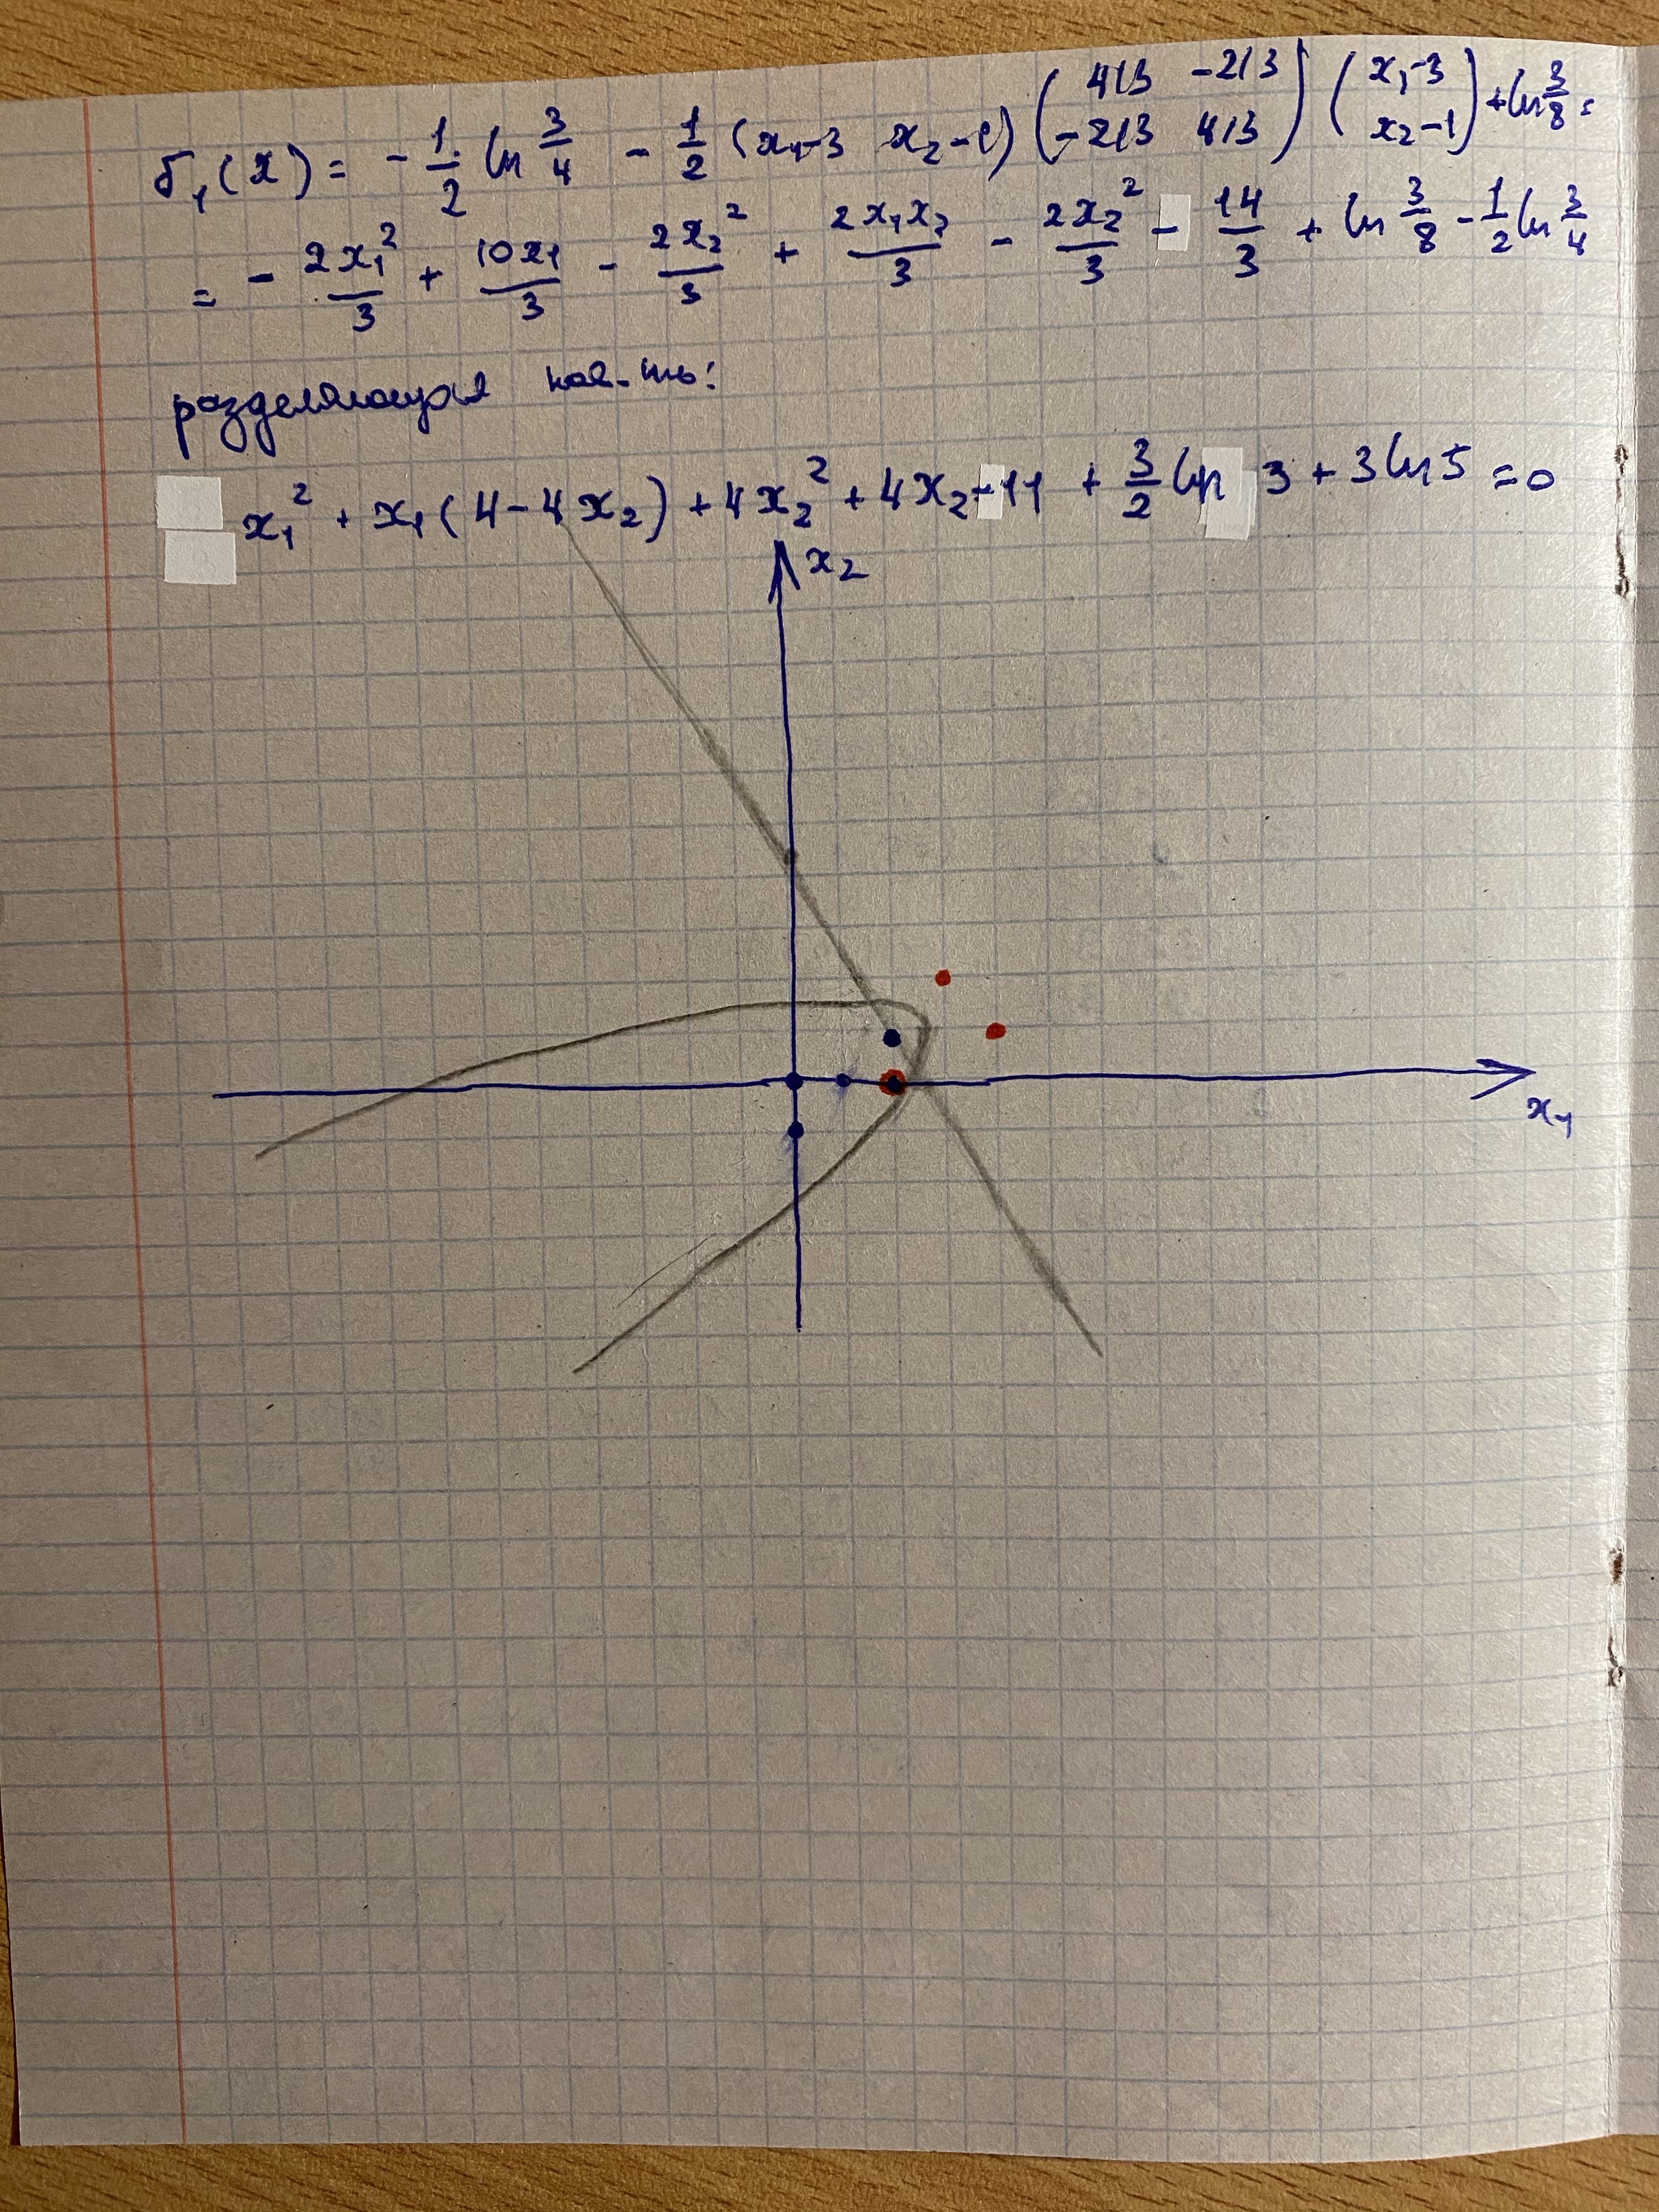 δ₁(x) = - 1/2 ln 3/4 - 1/2 (x₁-3 x₂-1) (4/3 -2/3 -2/3 4/3) (x₁-3 x₂-1) + ln 3/8 =
= - 2x₁²/3 + 10x₁/3 - 2x₂²/3 + 2x₁x₂/3 - 2x₂²/3 - 14/3 + ln 3/8 - 1/2 ln 3/4
разделяющая пов-ть:
x₁² + x₁(4-4x₂) + 4x₂² + 4x₂ - 11 + 3/2 ln 3 + 3 ln 5 = 0
x₂
x₁